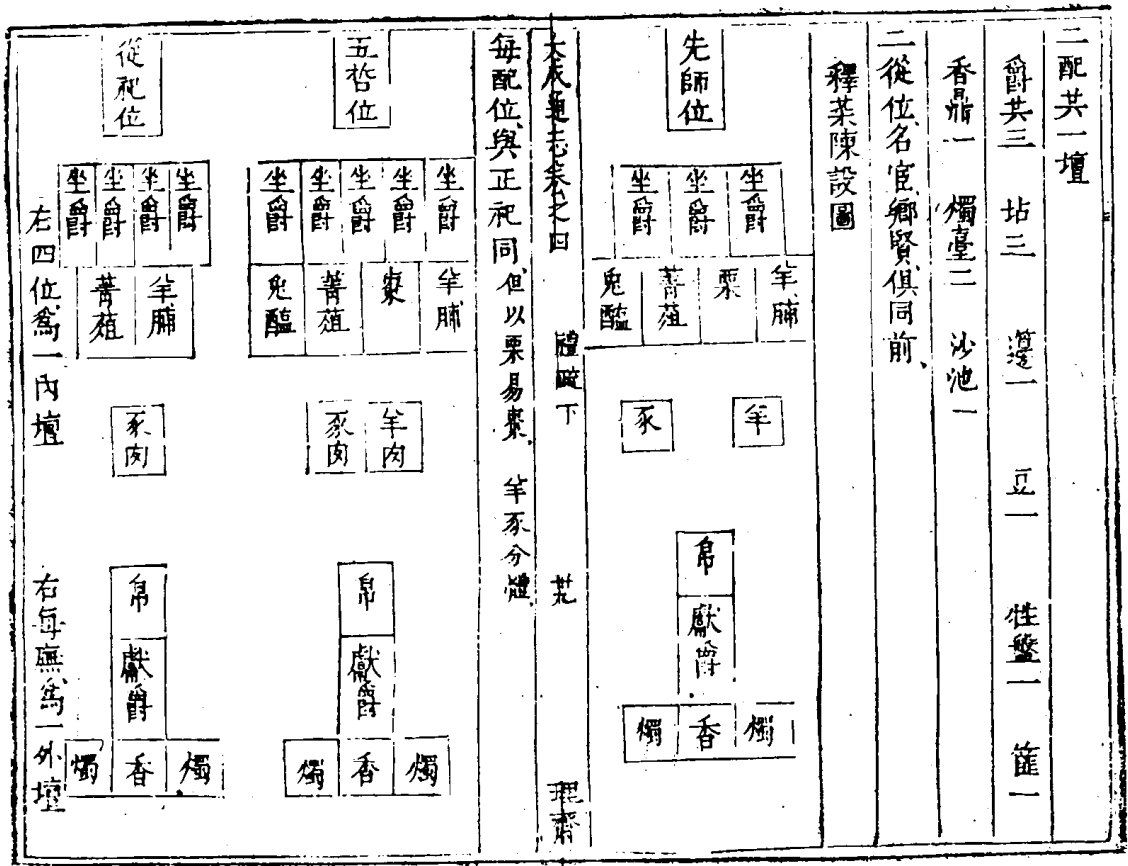 二配共一壇
爵共三 坫三 籩一 豆一 牲盤一 篚一
香鼎一 燭臺二 沙池一
二從位名宦鄉賢俱同前
釋菜陳設圖
先師位
坐爵 坐爵 坐爵
羊脯 栗 菁菹 兔醢
羊 豕
帛
獻爵
燭 香 燭
大成通志卷之四 禮疏下 理齋
每配位與正祀同但以栗易棗 羊豕分體
五哲位
坐爵 坐爵 坐爵 坐爵 坐爵
羊脯 棗 菁菹 兔醢
羊肉 豕肉
帛
獻爵
燭 香 燭
從祀位
坐爵 坐爵 坐爵 坐爵
羊脯 菁菹
豕肉
帛
獻爵
燭 香 燭
右四位為一內壇 右每廡為一外壇